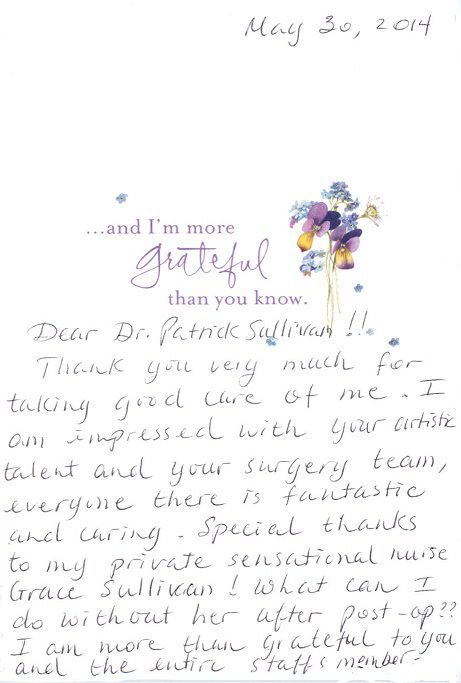 May 30, 2014
...and I'm more
grateful
than you know.
Dear Dr. Patrick Sullivan !!
Thank you very much for
taking good care of me. I
am impressed with your artistic
talent and your surgery team,
everyone there is fantastic
and caring. Special thanks
to my private sensational nurse
Grace Sullivan ! What can I
do without her after post-op??
I am more than grateful to you
and the entire staffs member-